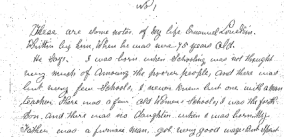 No 1
These are some notes of my life Emanuel Lovekin
Written by him, when he was near 75 years Old.
He Says. I was born when Schooling was not thought
very much of Among the poorer people, And there was
but very few Schools, I never knew but one with a man
teacher there was a few Old Women's Schools, I was the forth
Son, and there was no daughter when I was born. My
Father was a furnace man. got very good wages But spent